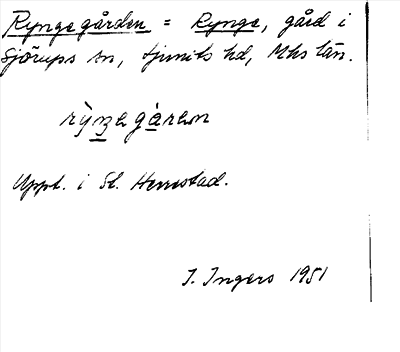 Ryngegården = Rynge, gård i
Sjörups sn, Ljunits hd, Mhs län.
rỳnge gàren
Uppt. i St. Herrestad.
I. Ingers 1951